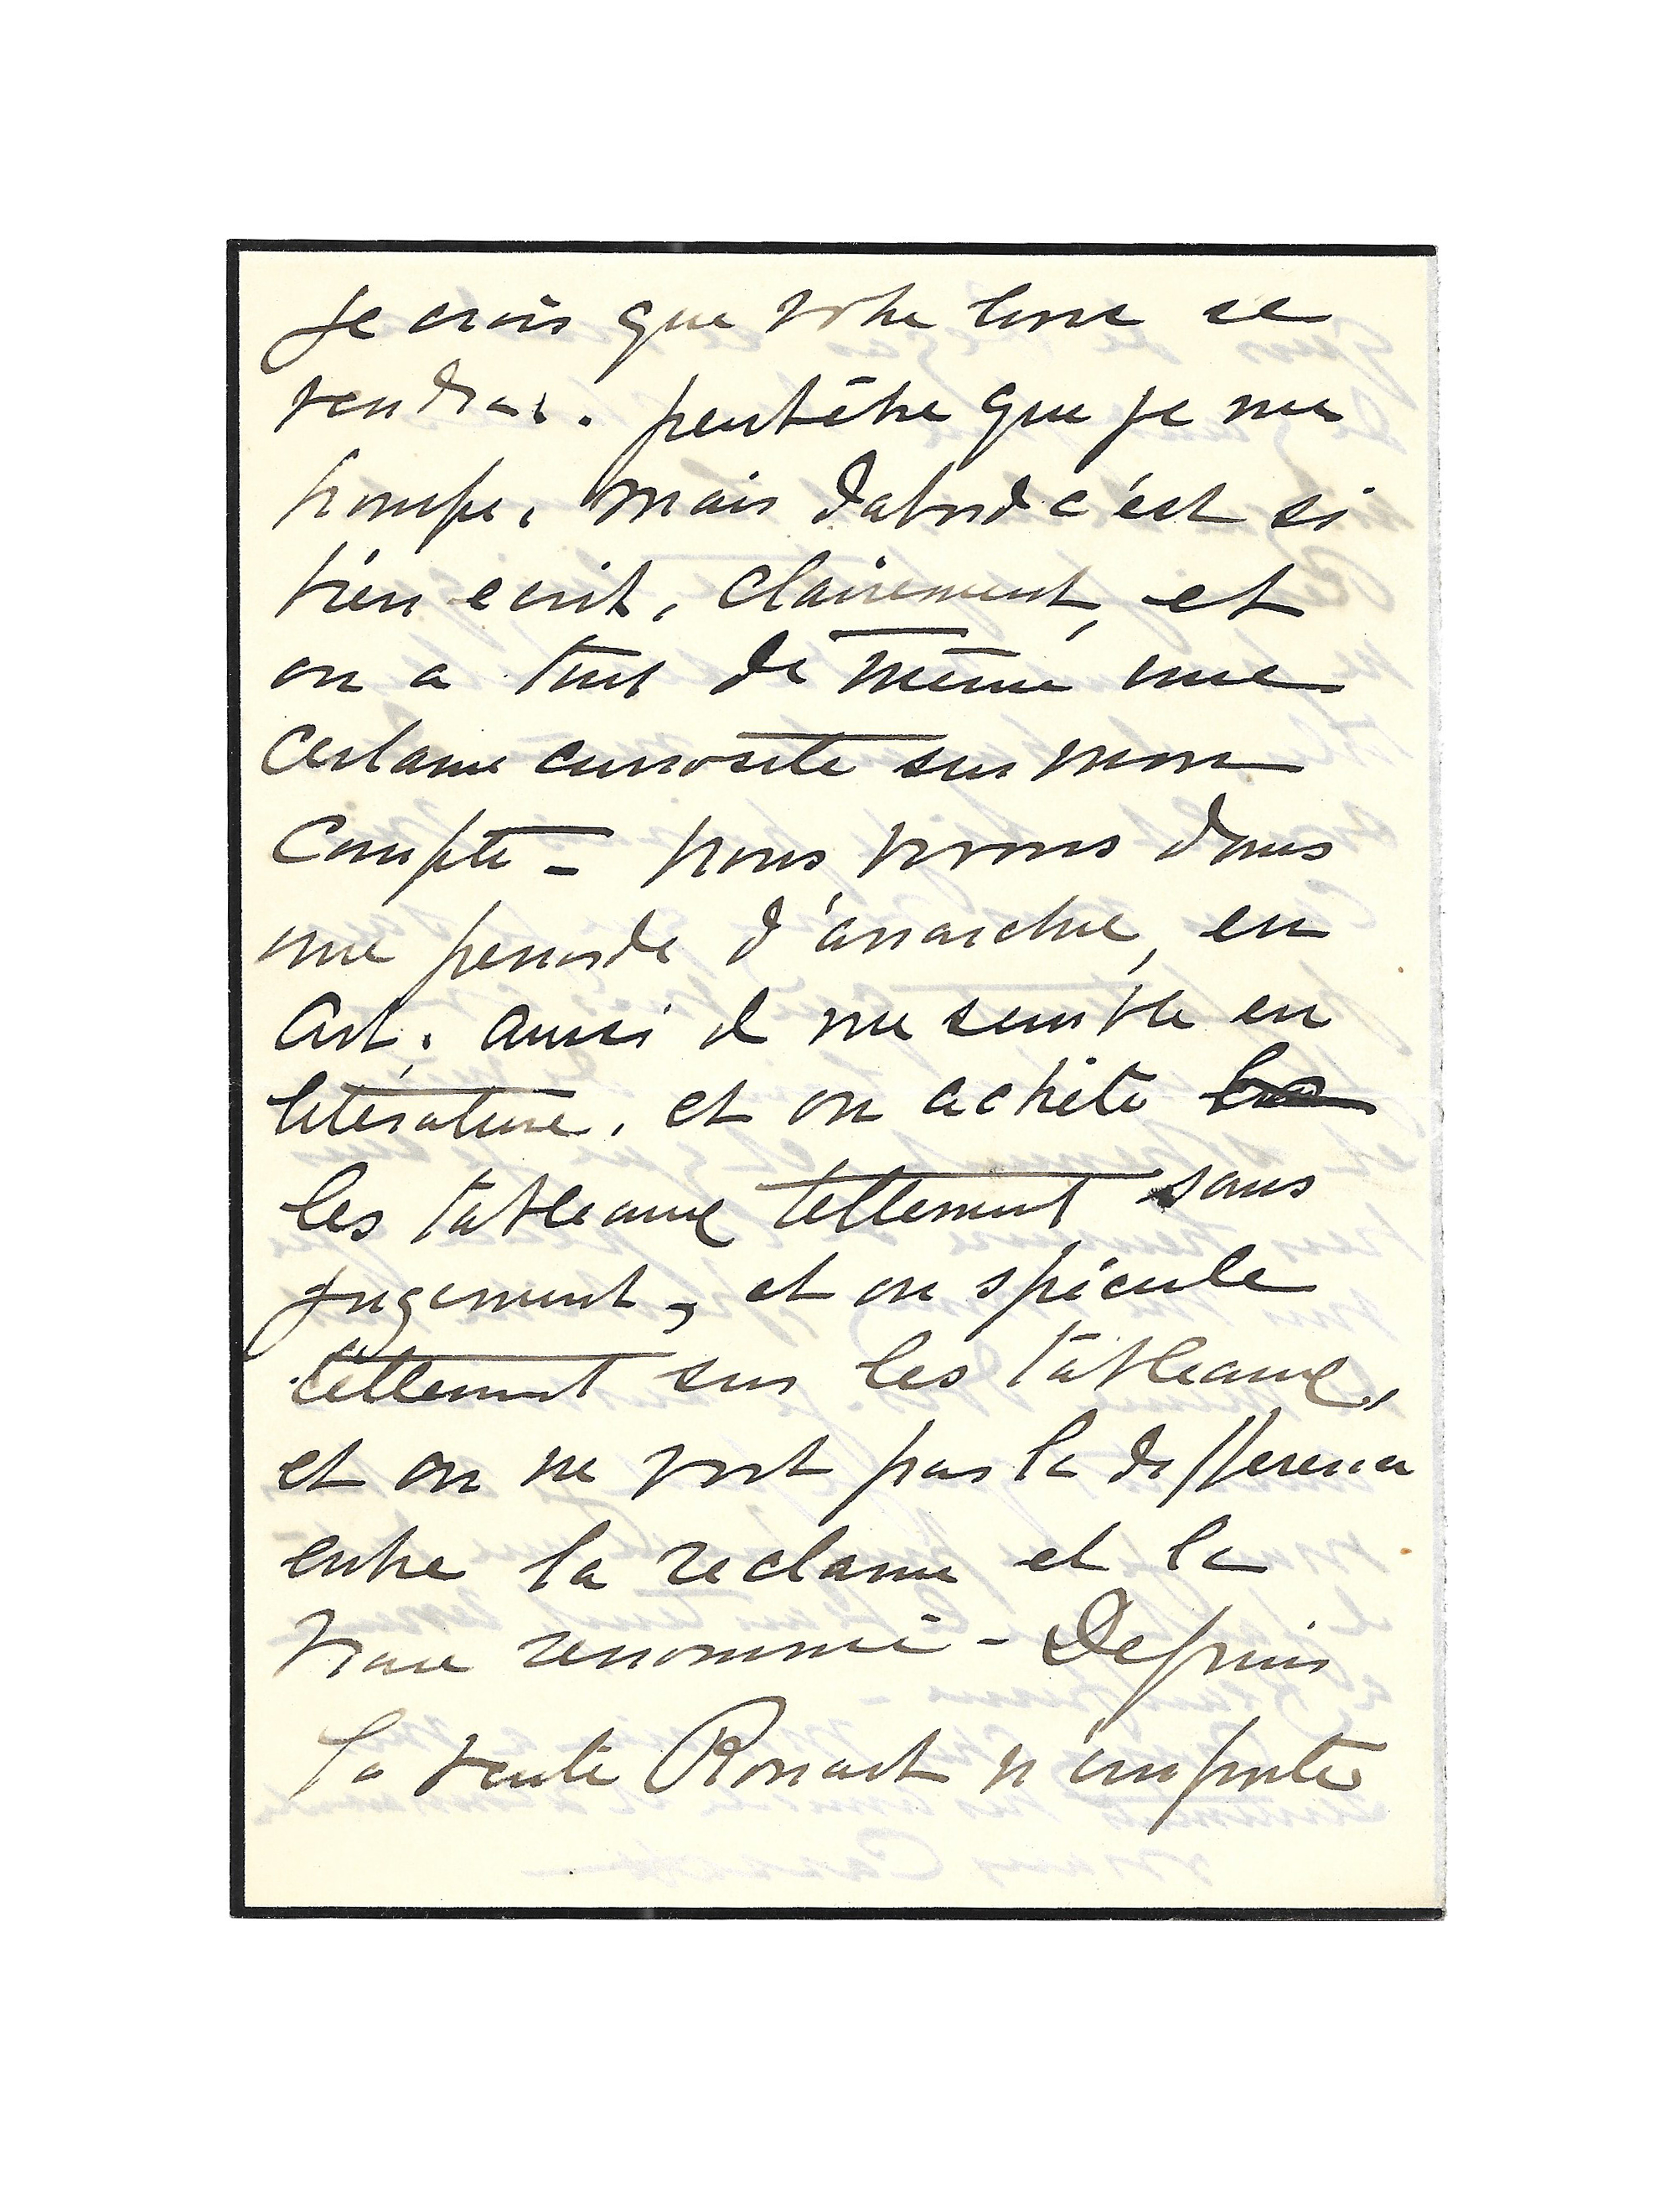 Je crois que votre livre se
vendra. peutêtre que je me
trompe, mais dabord c'est si
bien ecrit, clairement, et
on a tout de même une
certaine curiosite sur mon
compte - nous vivons dans
une periode d'anarchie, en
Art, aussi il me semble en
literature, et on achète
les tableaux tellement sans
jugement, et on spécule
tellement sur les tableaux,
et on ne voit pas la difference
entre la reclame et la
vraie renommé - Depuis
la vente Rouart n'importe